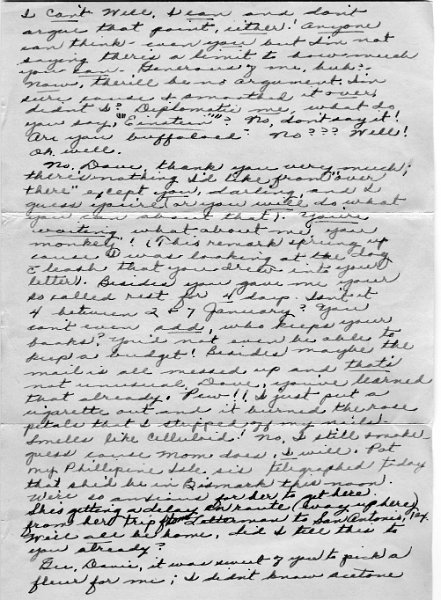 I Can't Well, I can and don't
argue that point, either! Anyone
can think - even you but I'm not
saying there's a limit to how much
you can. Generous of me, huh?
Now, there'll be no argument, I'm
sure, cause I smoothed it over,
didn't I? Diplomatic me, what do
you say, "Einstein"? No, don't say it!
Are you buffaloed? No??? Well!
Oh, well.
No, Dave, thank you very much;
there's nothing I'd like from "over
there" except you, darling, and I
guess you're or you will do what
you can about that). You're
waiting what about me, you
monkey! (This remark sprung up
cause I was looking at the dog
& leash that you drew into your
letter). Besides you gave me your
so called rest for 4 days. Isn't it
4 between 2 & 7 January? You
can't even add, who keeps your
books? You'd not even be able to
keep a budget! Besides maybe the
mail is all messed up and that's
not unusual, Dave, you've learned
that already. Pew!! I just put a
cigarette out and it burned the rose
petals that I stripped off my nails!
Smells like celluloid! No, I still smoke
guess cause Mom does, I will. Pat
my Phillipine Isle, sis telegraphed today
that she'd be in Bismark this noon.
We're so anxious for her to get here.
She's getting a delay en route (way up here)
from her trip from Letterman to San Antonio, Tex.
We'll all be home. Did I tell this to
you already?
Gee, Davie, it was sweet of you to pick a
fleur for me; I didn't know acetone